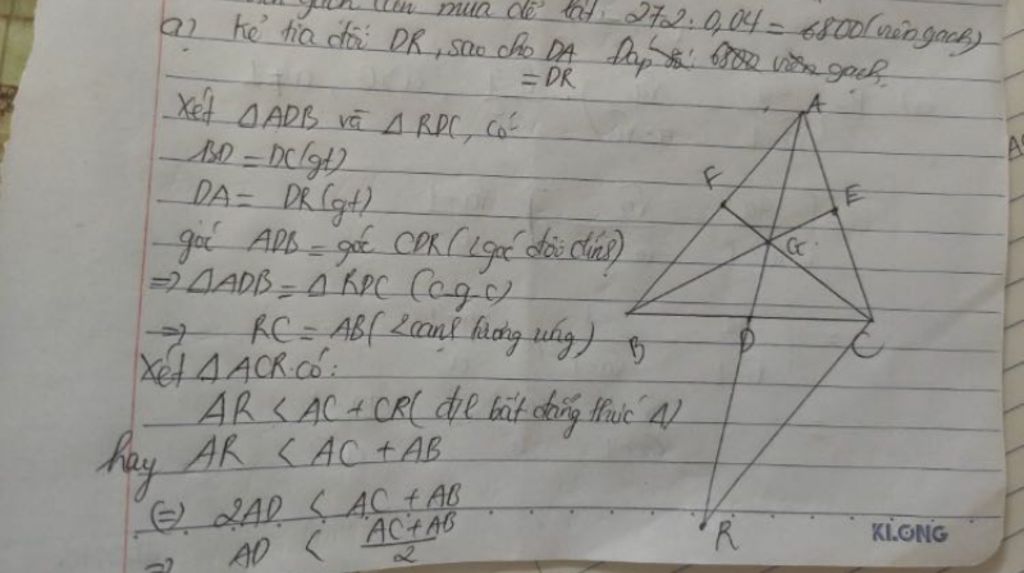 gạch cần mua để lát: 272 : 0,04 = 6800 (viên gạch)
a) Kẻ tia đối DR, sao cho DA = DR
Đáp số: 6800 viên gạch
Xét ΔADB và ΔRDC, có:
BD = DC (gt)
DA = DR (gt)
góc ADB = góc CDR (2 góc đối đỉnh)
=> ΔADB = ΔRDC (c-g-c)
=> RC = AB (2 cạnh tương ứng)
Xét ΔACR có:
AR < AC + CR (đ/l bất đẳng thức Δ)
hay AR < AC + AB
(=) 2AD < AC + AB
=> AD < (AC + AB)/2
A
F
E
G
B
D
C
R
KLONG